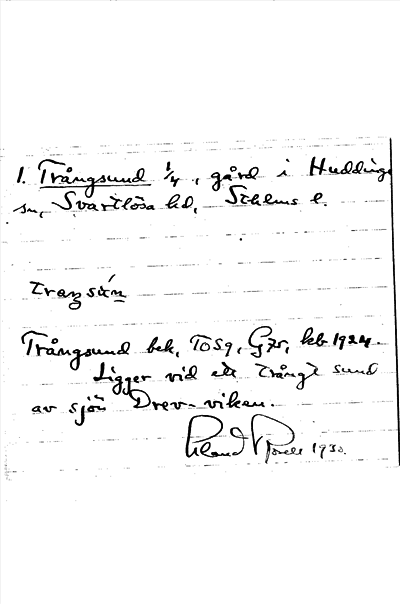 1. Trångsund 1/4, gård i Huddinge
sn, Svartlösa hd, Sthlms l.
traŋsún
Trångsund bek, TOSg, Gzr, kb 1924.
Ligger vid ett trångt sund
av sjön Drev-viken.
1930.